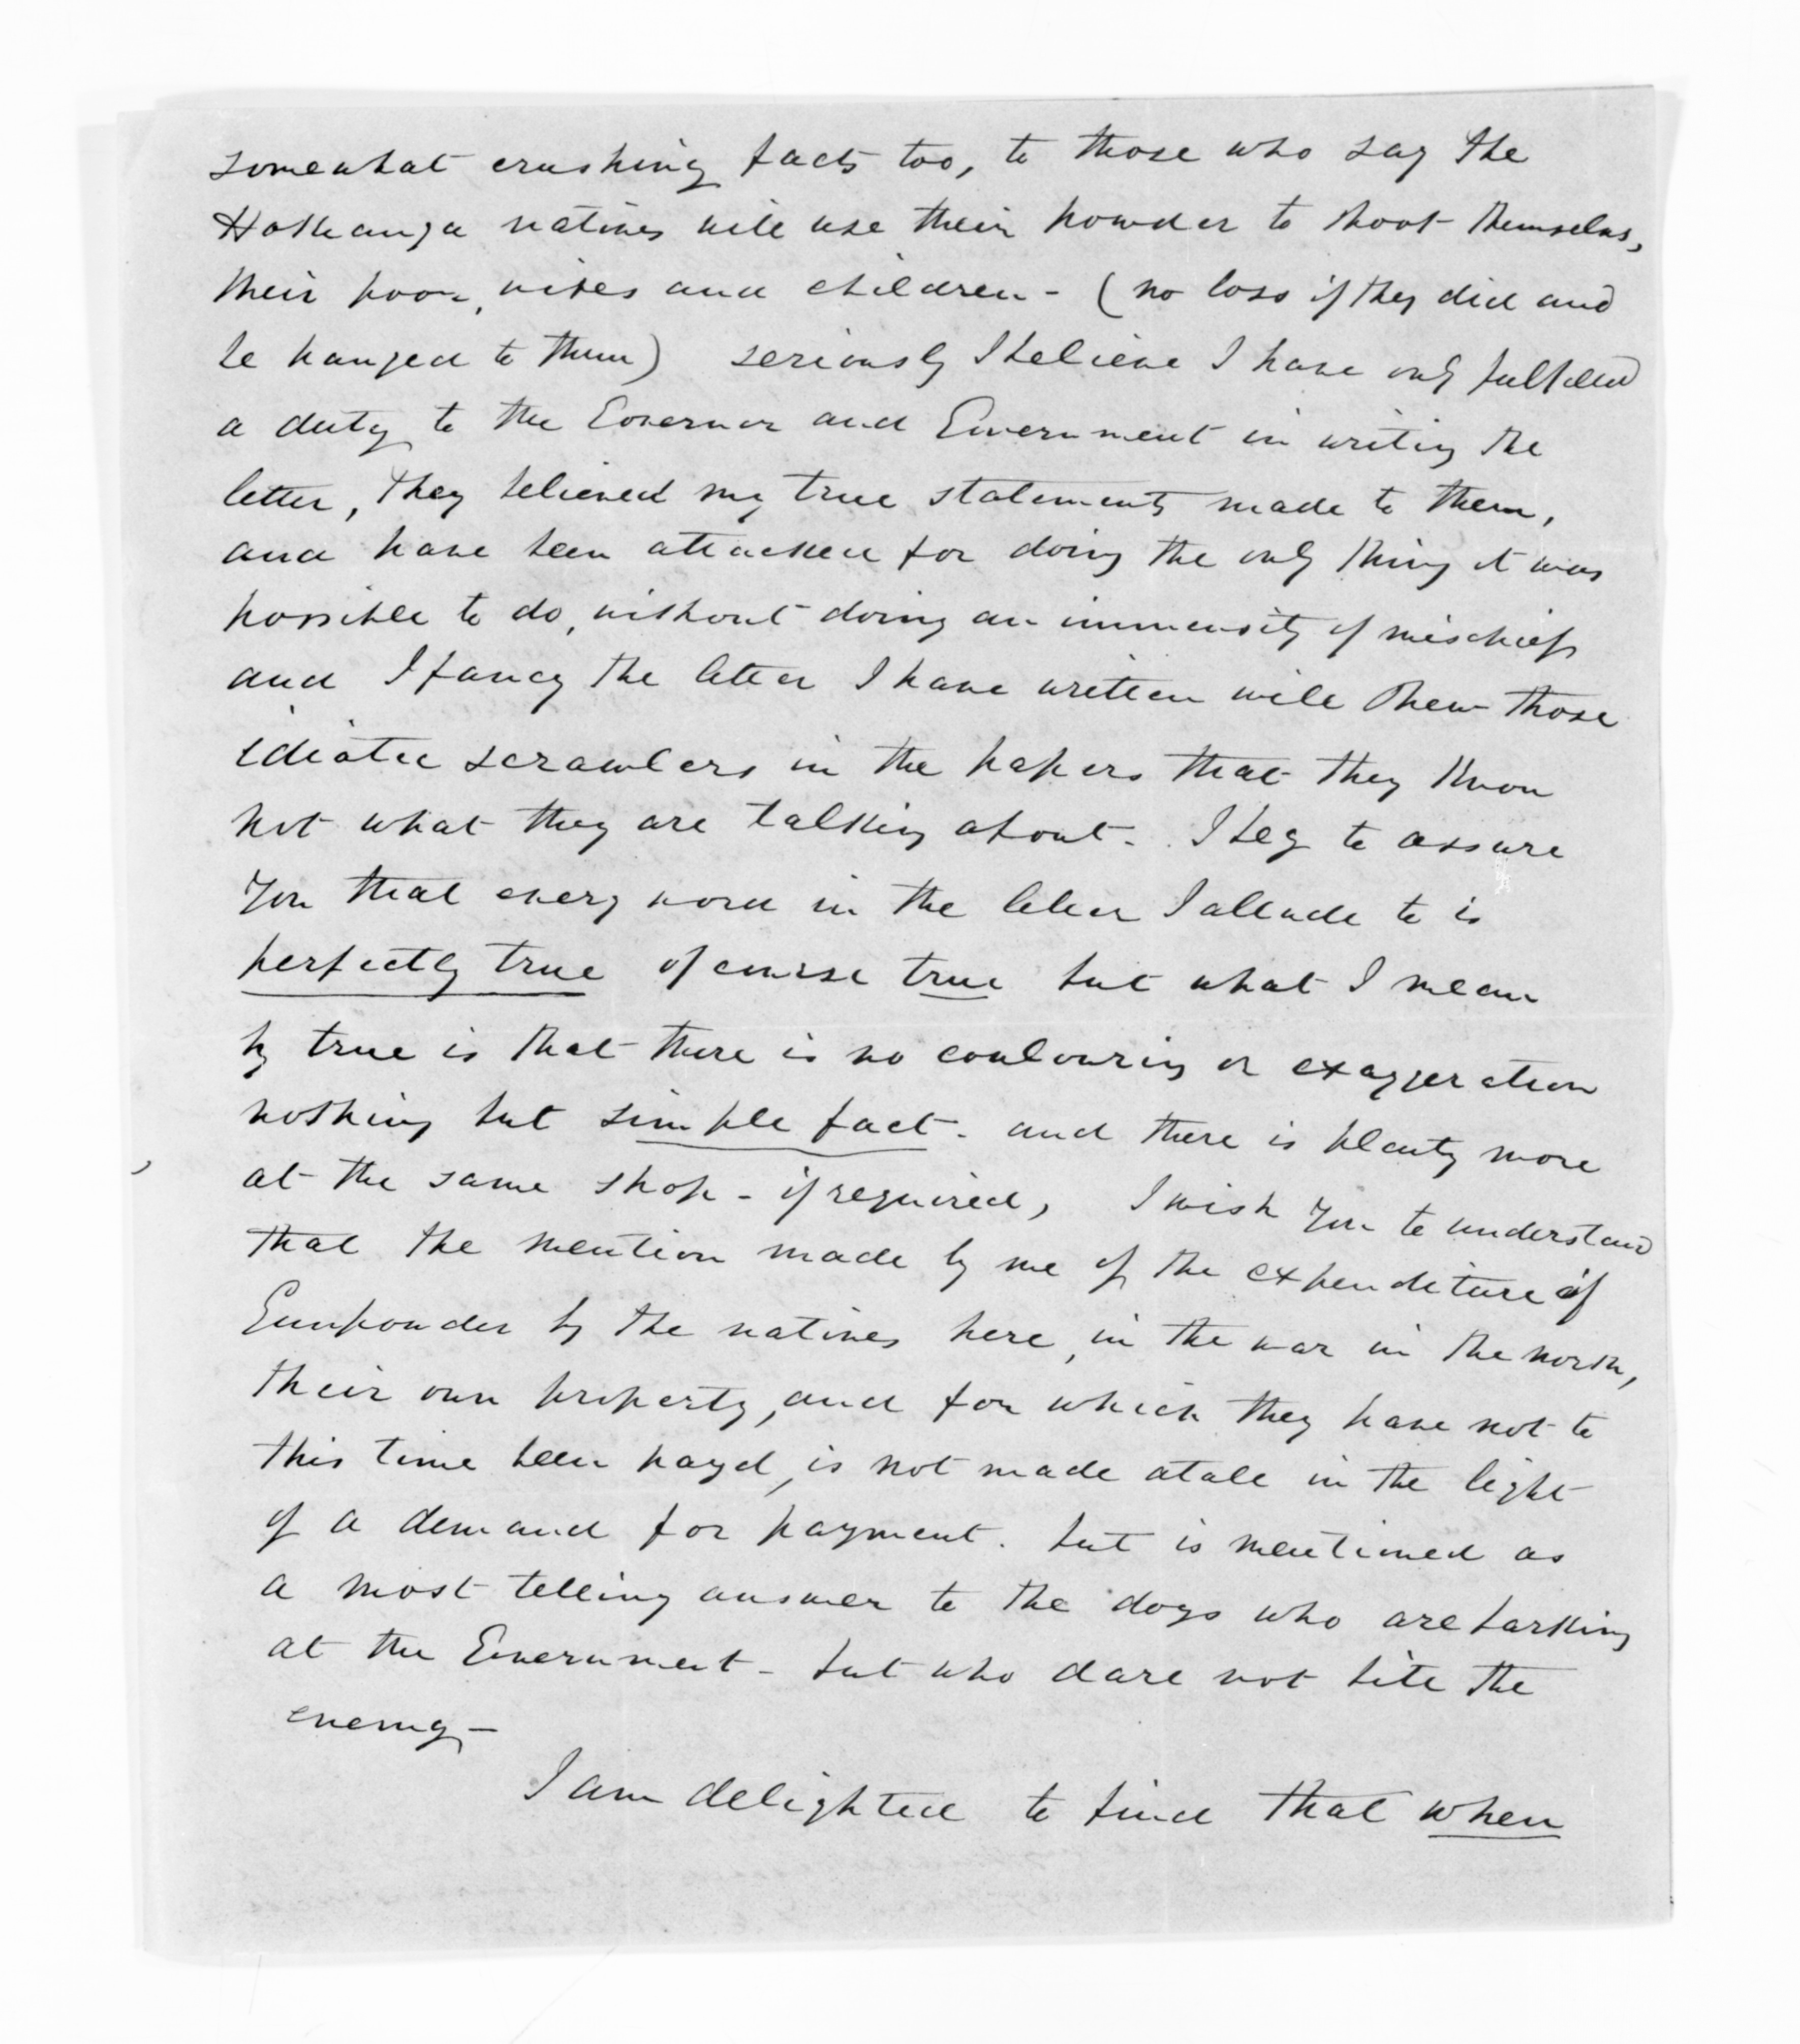 somewhat crushing facts too, to those who say the
Hokianga natives will use their powder to shoot themselves,
their poor, wives and children - (no loss if they did and
be hanged to them) seriously I believe I have only fulfilled
a duty to the Governor and Government in writing the
letter, they believed my true statements made to them,
and have been attacked for doing the only thing it was
possible to do, without doing an immensity of mischief
and I fancy the letter I have written will shew those
idiotic scrawlers in the papers that they know
not what they are talking about. I beg to assure
you that every word in the letter I allude to is
perfectly true of course true but what I mean
by true is that there is no coulouring or exaggeration
nothing but simple fact - and there is plenty more
at the same shop - if required, I wish you to understand
that the mention made by me of the expenditure of
Gunpowder by the natives here, in the war in the north,
their own property, and for which they have not to
this time been payd, is not made atale in the light
of a demand for payment. but is mentioned as
a most telling answer to the dogs who are barking
at the Government - but who dare not bite the
enemy -
I am delighted to find that when